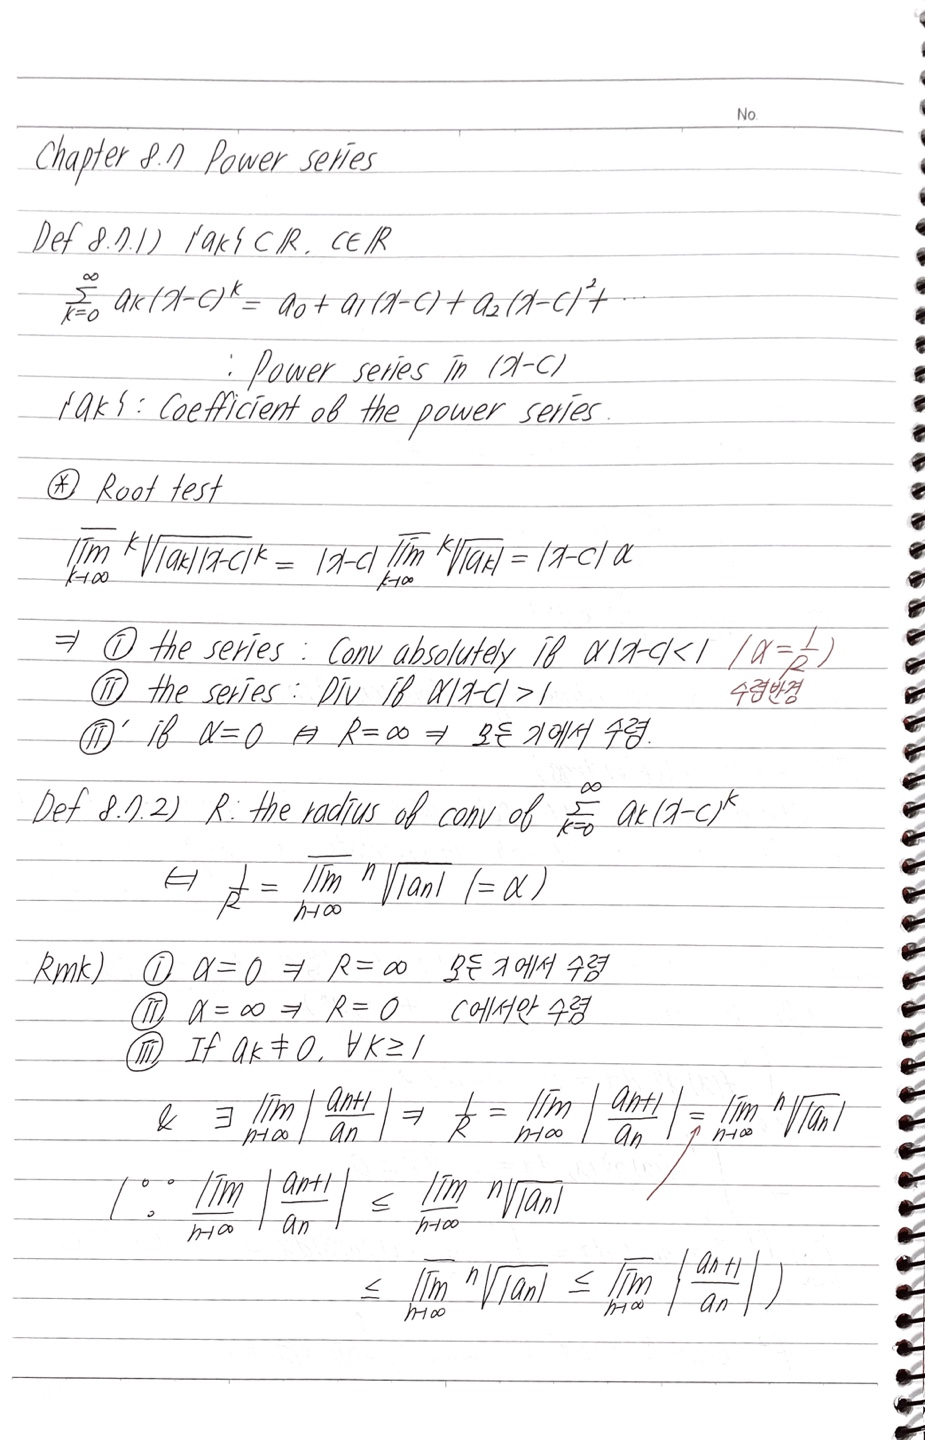 No.
Chapter 8.7 Power series
Def 8.7.1) {ak} ⊂ ℝ, c∈ℝ
∞Σk=0 ak(x-c)^k = a0 + a1(x-c) + a2(x-c)^2 + ⋯
: Power series in (x-c)
{ak} : Coefficient of the power series.
⊛ Root test
lim̅ k→∞ ^k√|ak||x-c|^k = |x-c| lim̅ k→∞ ^k√|ak| = |x-c| α
⇒ ⓘ the series : Conv absolutely if α|x-c|<1 (α = 1/R)
ⓘⓘ the series : Div if α|x-c| > 1 수렴반경
ⓘⓘ' if α=0 ⇔ R=∞ ⇒ 모든 x에서 수렴.
Def 8.7.2) R: the radius of conv of ∞Σk=0 ak(x-c)^k
⇔ 1/R = lim̅ n→∞ ^n√|an| (=α)
Rmk) ⓘ α=0 ⇒ R=∞ 모든 x에서 수렴
ⓘⓘ α=∞ ⇒ R=0 c에서만 수렴
ⓘⓘⓘ If ak≠0, ∀k≥1
& ∃ lim n→∞ |an+1/an| ⇒ 1/R = lim n→∞ |an+1/an| = lim n→∞ ^n√|an|
(∵ lim̲ n→∞ |an+1/an| ≤ lim̲ n→∞ ^n√|an|
≤ lim̅ n→∞ ^n√|an| ≤ lim̅ n→∞ |an+1/an| )